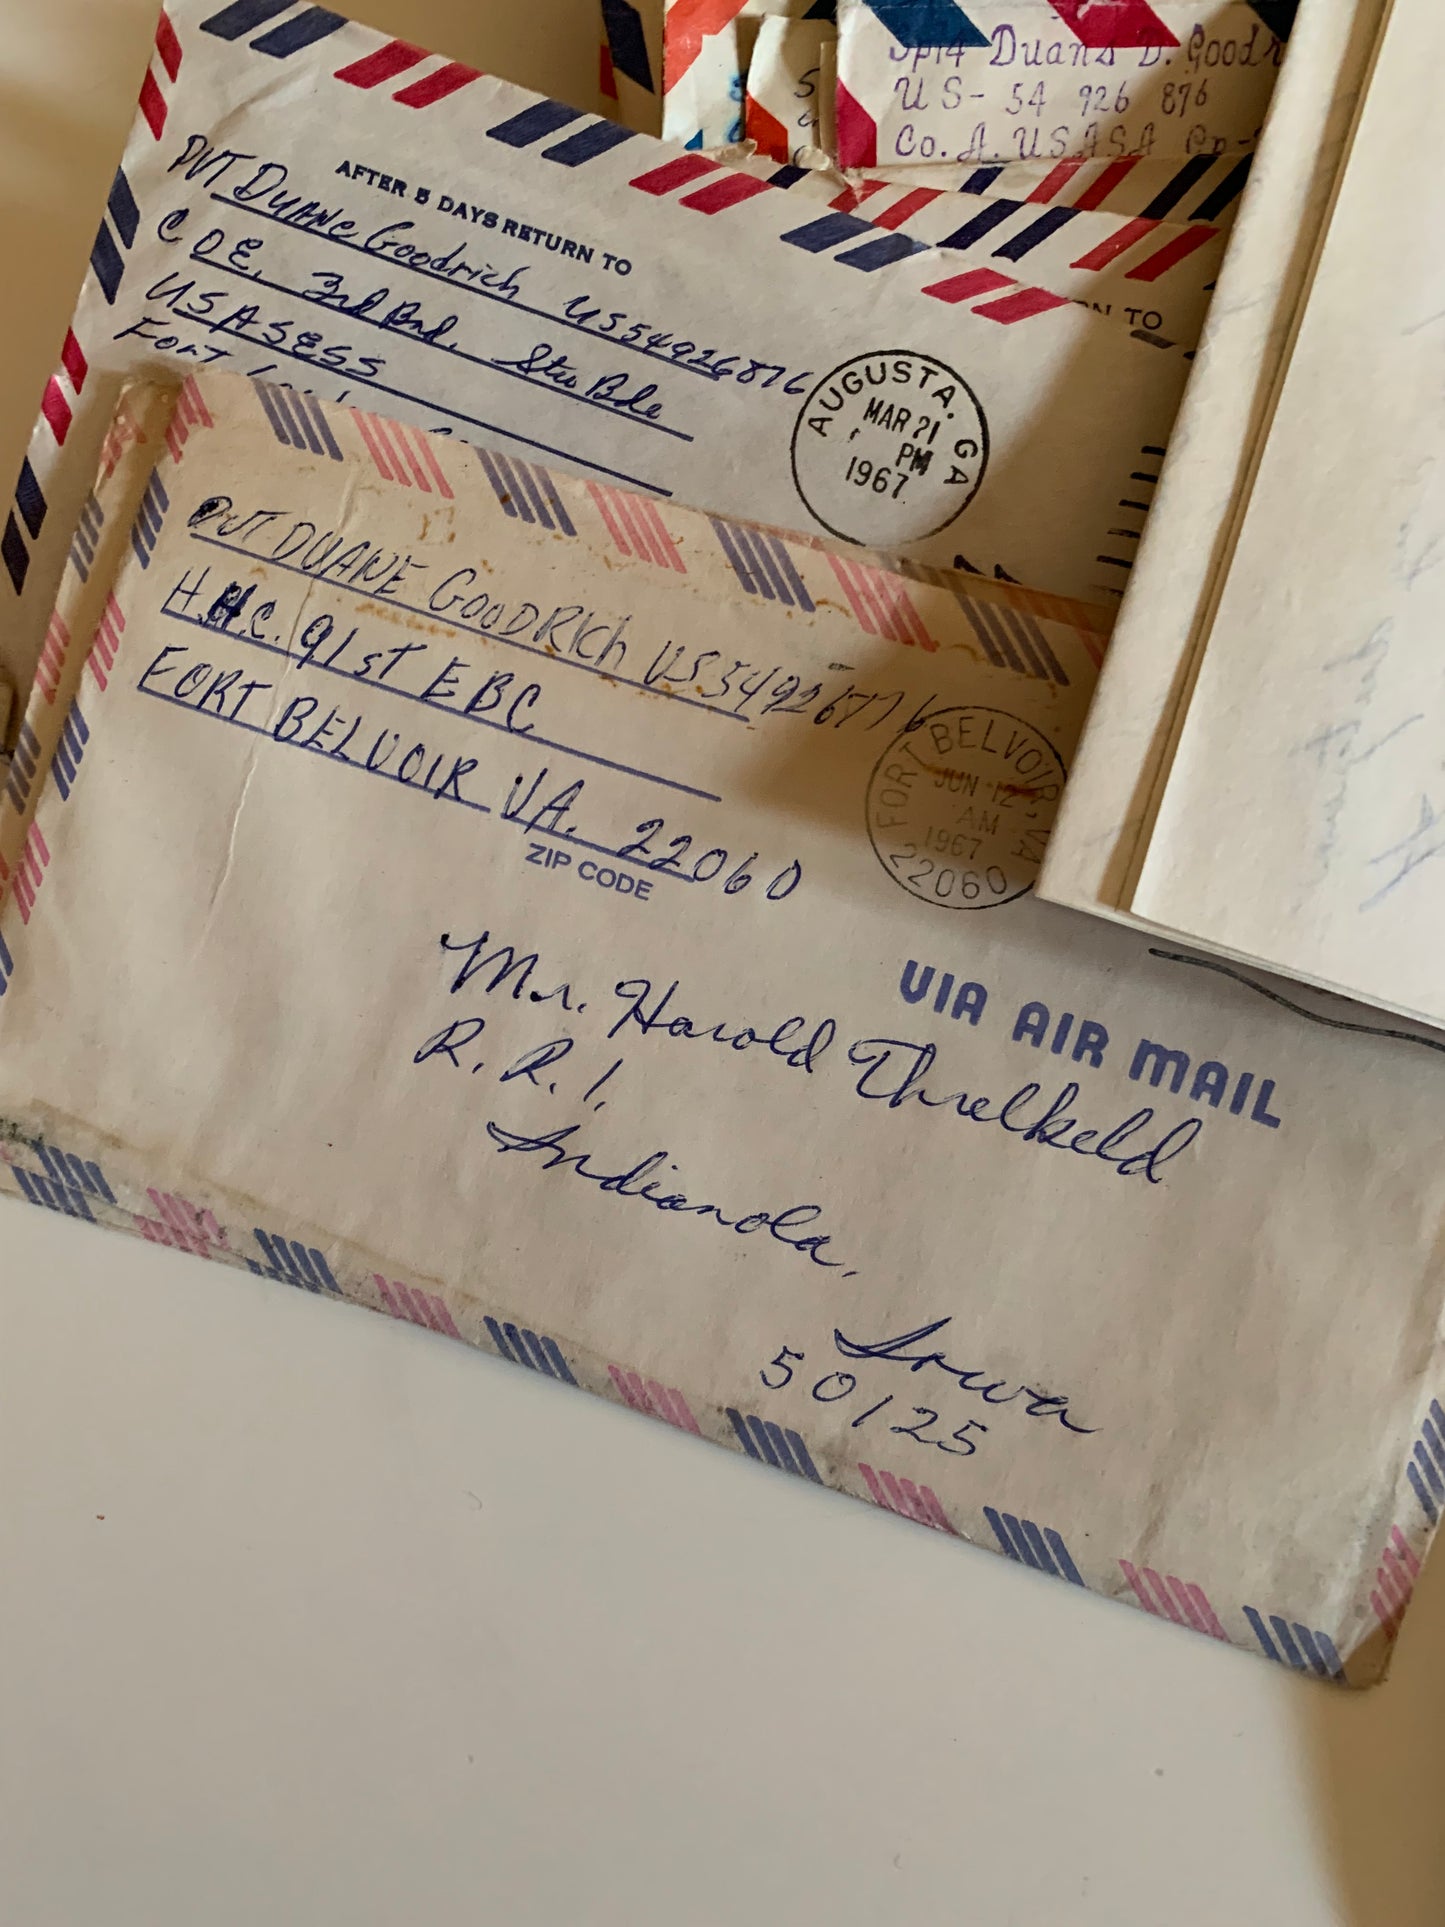 Sp14 Duane D. Goodr
US- 54 926 876
Co. A. USASA
AFTER 5 DAYS RETURN TO
PVT Duane Goodrich US54926876
CO E, 3rd Bnd, Stu Bde
USASESS
Fort
AUGUSTA. GA
MAR 21
PM
1967
ON TO
PVT DUANE GOODRICh US54926776
H.H.C. 91st EBC
FORT BELVOIR VA. 22060
ZIP CODE
FORT BELVOIR, VA
JUN 12
AM
1967
22060
VIA AIR MAIL
Mr. Harold Threlkeld
R. R. 1.
Indianola,
Iowa
50125